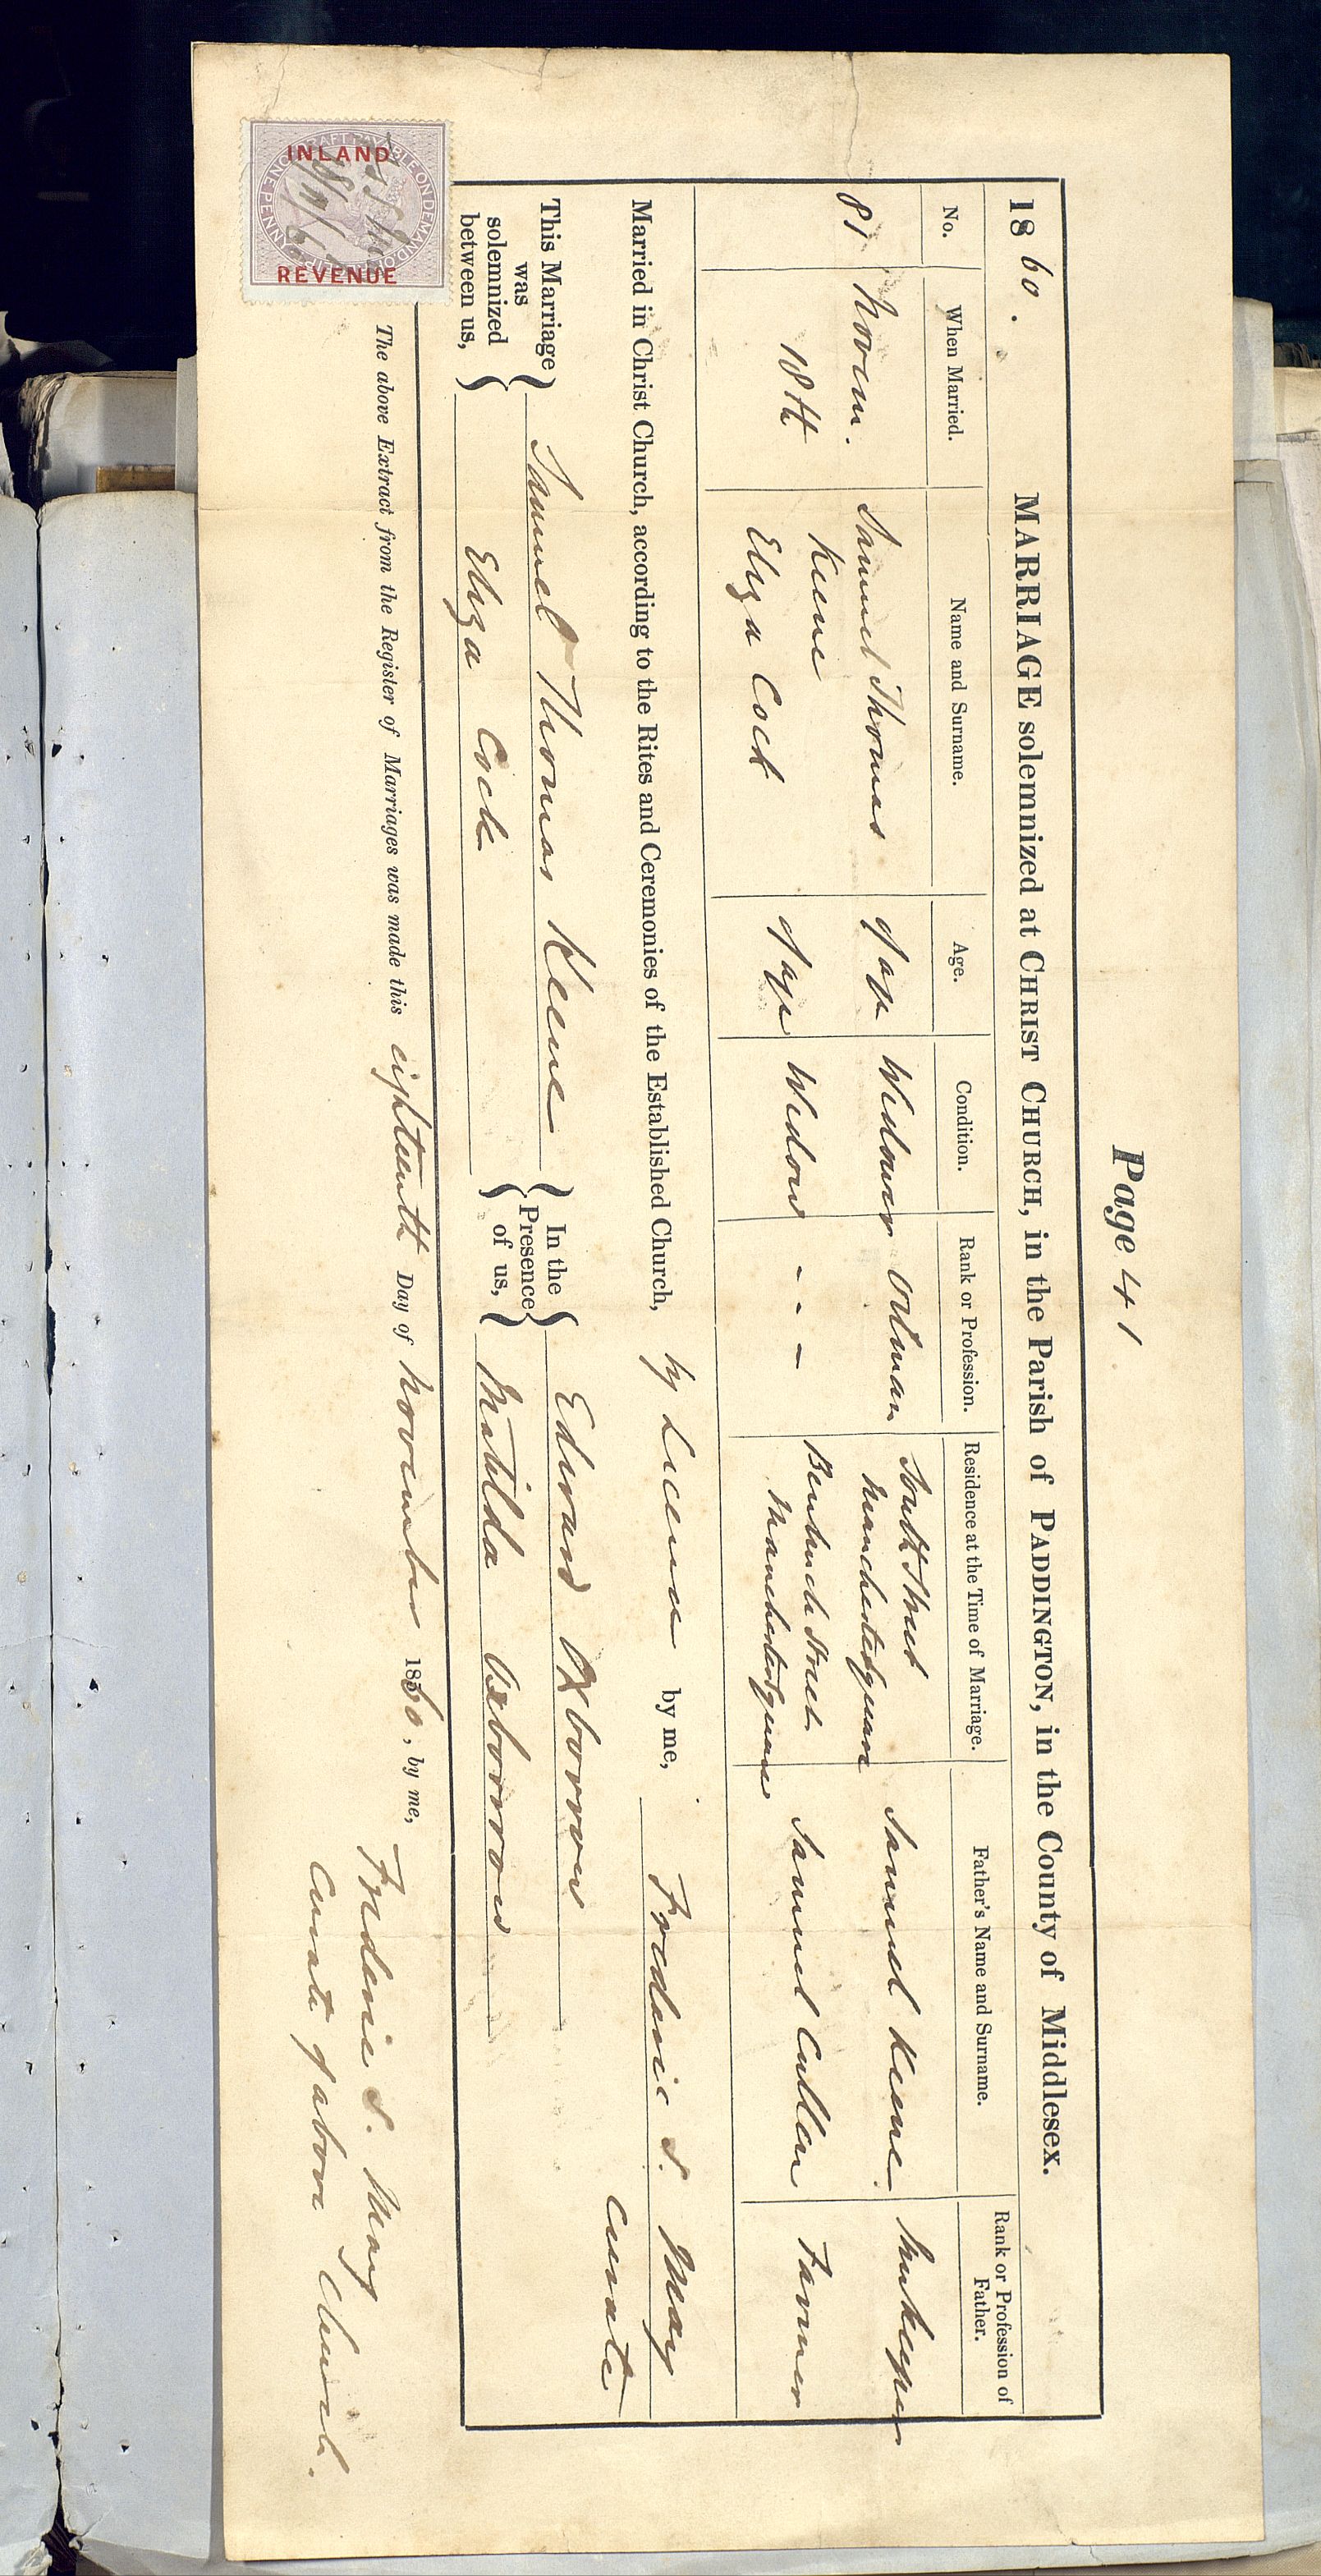 Page 41
1860. MARRIAGE solemnized at CHRIST CHURCH, in the Parish of PADDINGTON, in the County of Middlesex.
No. When Married. Name and Surname. Age. Condition. Rank or Profession. Residence at the Time of Marriage. Father's Name and Surname. Rank or Profession of Father.
81 Novem. Samuel Thomas of age Widower Oilman South Street Samuel Keene. Innkeeper
18th Keene Manchester Square
Eliza Cock of age Widow - - - Bentinck Street Samuel Cullen Farmer
Manchester Square
Married in Christ Church, according to the Rites and Ceremonies of the Established Church, by Licence by me, Frederic S. May
Curate
This Marriage was solemnized between us, Samuel Thomas Keene In the Presence of us, Edward Oxborrow
Eliza Cock Matilda Oxborrow
The above Extract from the Register of Marriages was made this eighteenth Day of November 1860, by me, Frederic S. May
Curate of above Church.
INLAND
DRAFT PAYABLE ON DEMAND OR RECEIPT
ONE PENNY
REVENUE